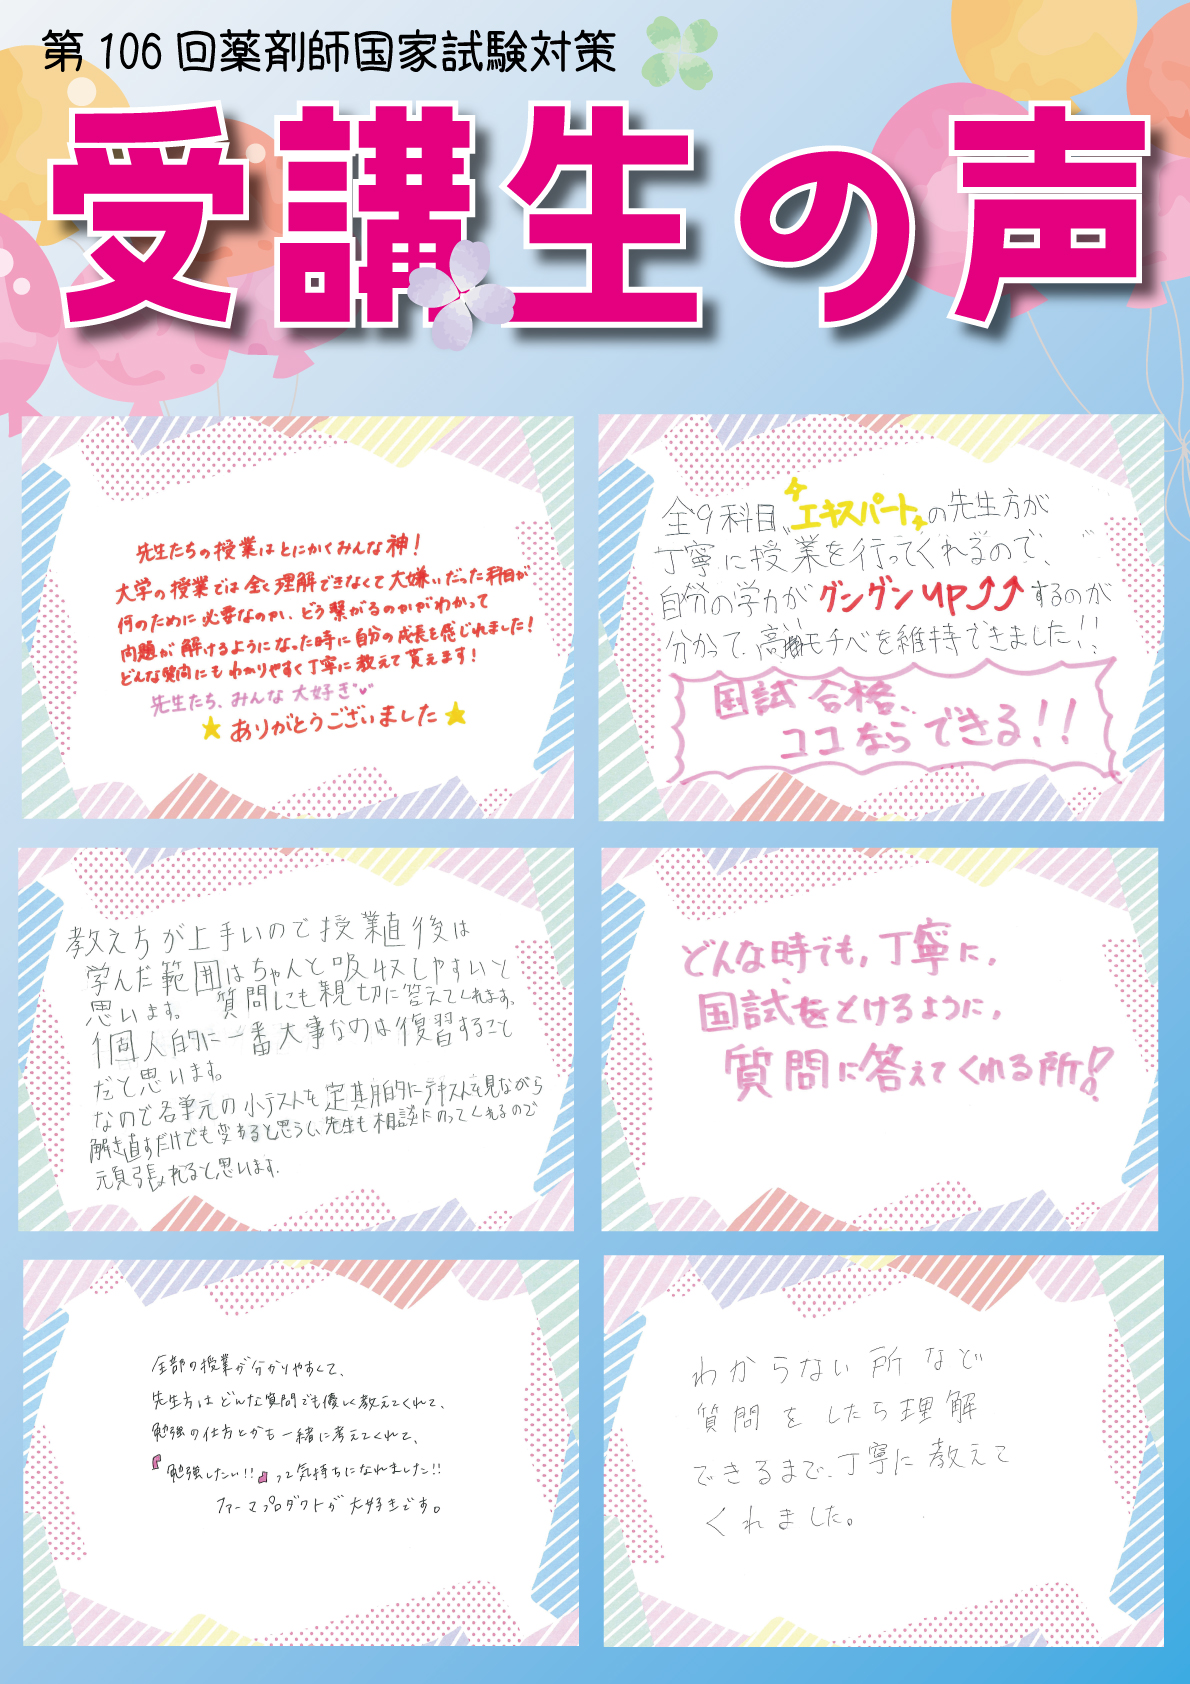 第106回薬剤師国家試験対策
受講生の声
先生たちの授業はとにかくみんな神!
大学の授業では全く理解できなくて大嫌いだった科目が
何のために必要なのか、どう繋がるのかがわかって
問題が解けるようになった時に自分の成長を感じれました!
どんな質問にもわかりやすく丁寧に教えて貰えます!
先生たち、みんな大好き
ありがとうございました
全9科目、エキスパートの先生方が
丁寧に授業を行ってくれるので、
自分の学力がグングンUPするのが
分かって、高いモチベを維持できました!!
国試合格、
ココならできる!!
教え方が上手いので授業直後は
学んだ範囲はちゃんと吸収しやすいと
思います。質問しにも親切に答えてくれます。
個人的に一番大事なのは復習すること
だと思います。
なので各単元の小テストを定期的にテキストを見ながら
解き直すだけでも変わると思うし、先生も相談にのってくれるので
頑張れると思います。
どんな時でも,丁寧に,
国試をとけるように,
質問に答えてくれる所!
全部の授業が分かりやすくて、
先生方はどんな質問でも優しく教えてくれて、
勉強の仕方とかも一緒に考えてくれて、
『勉強したい!!』って気持ちになれました!!
ファーマプロダクトが大好きです。
わからない所など
質問をしたら理解
できるまで、丁寧に教えて
くれました。